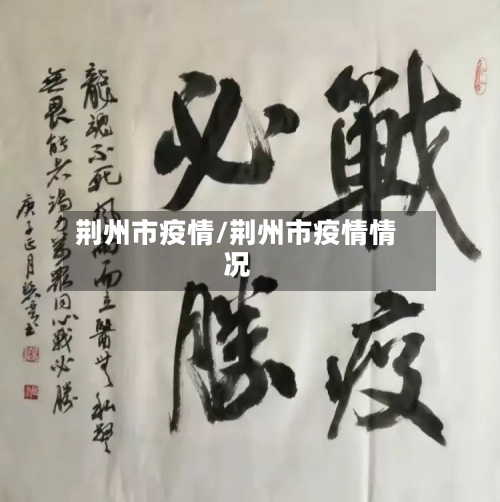 戰疫
必勝
龍魂不死風雨而立醫無私警
無畏能者竭力萬眾同心戰必勝
庚子正月
荆州市疫情/荆州市疫情情
况